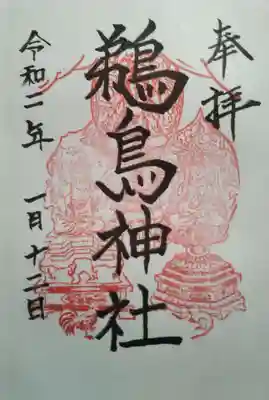 奉拝
鵜鳥神社
令和二年 一月十二日